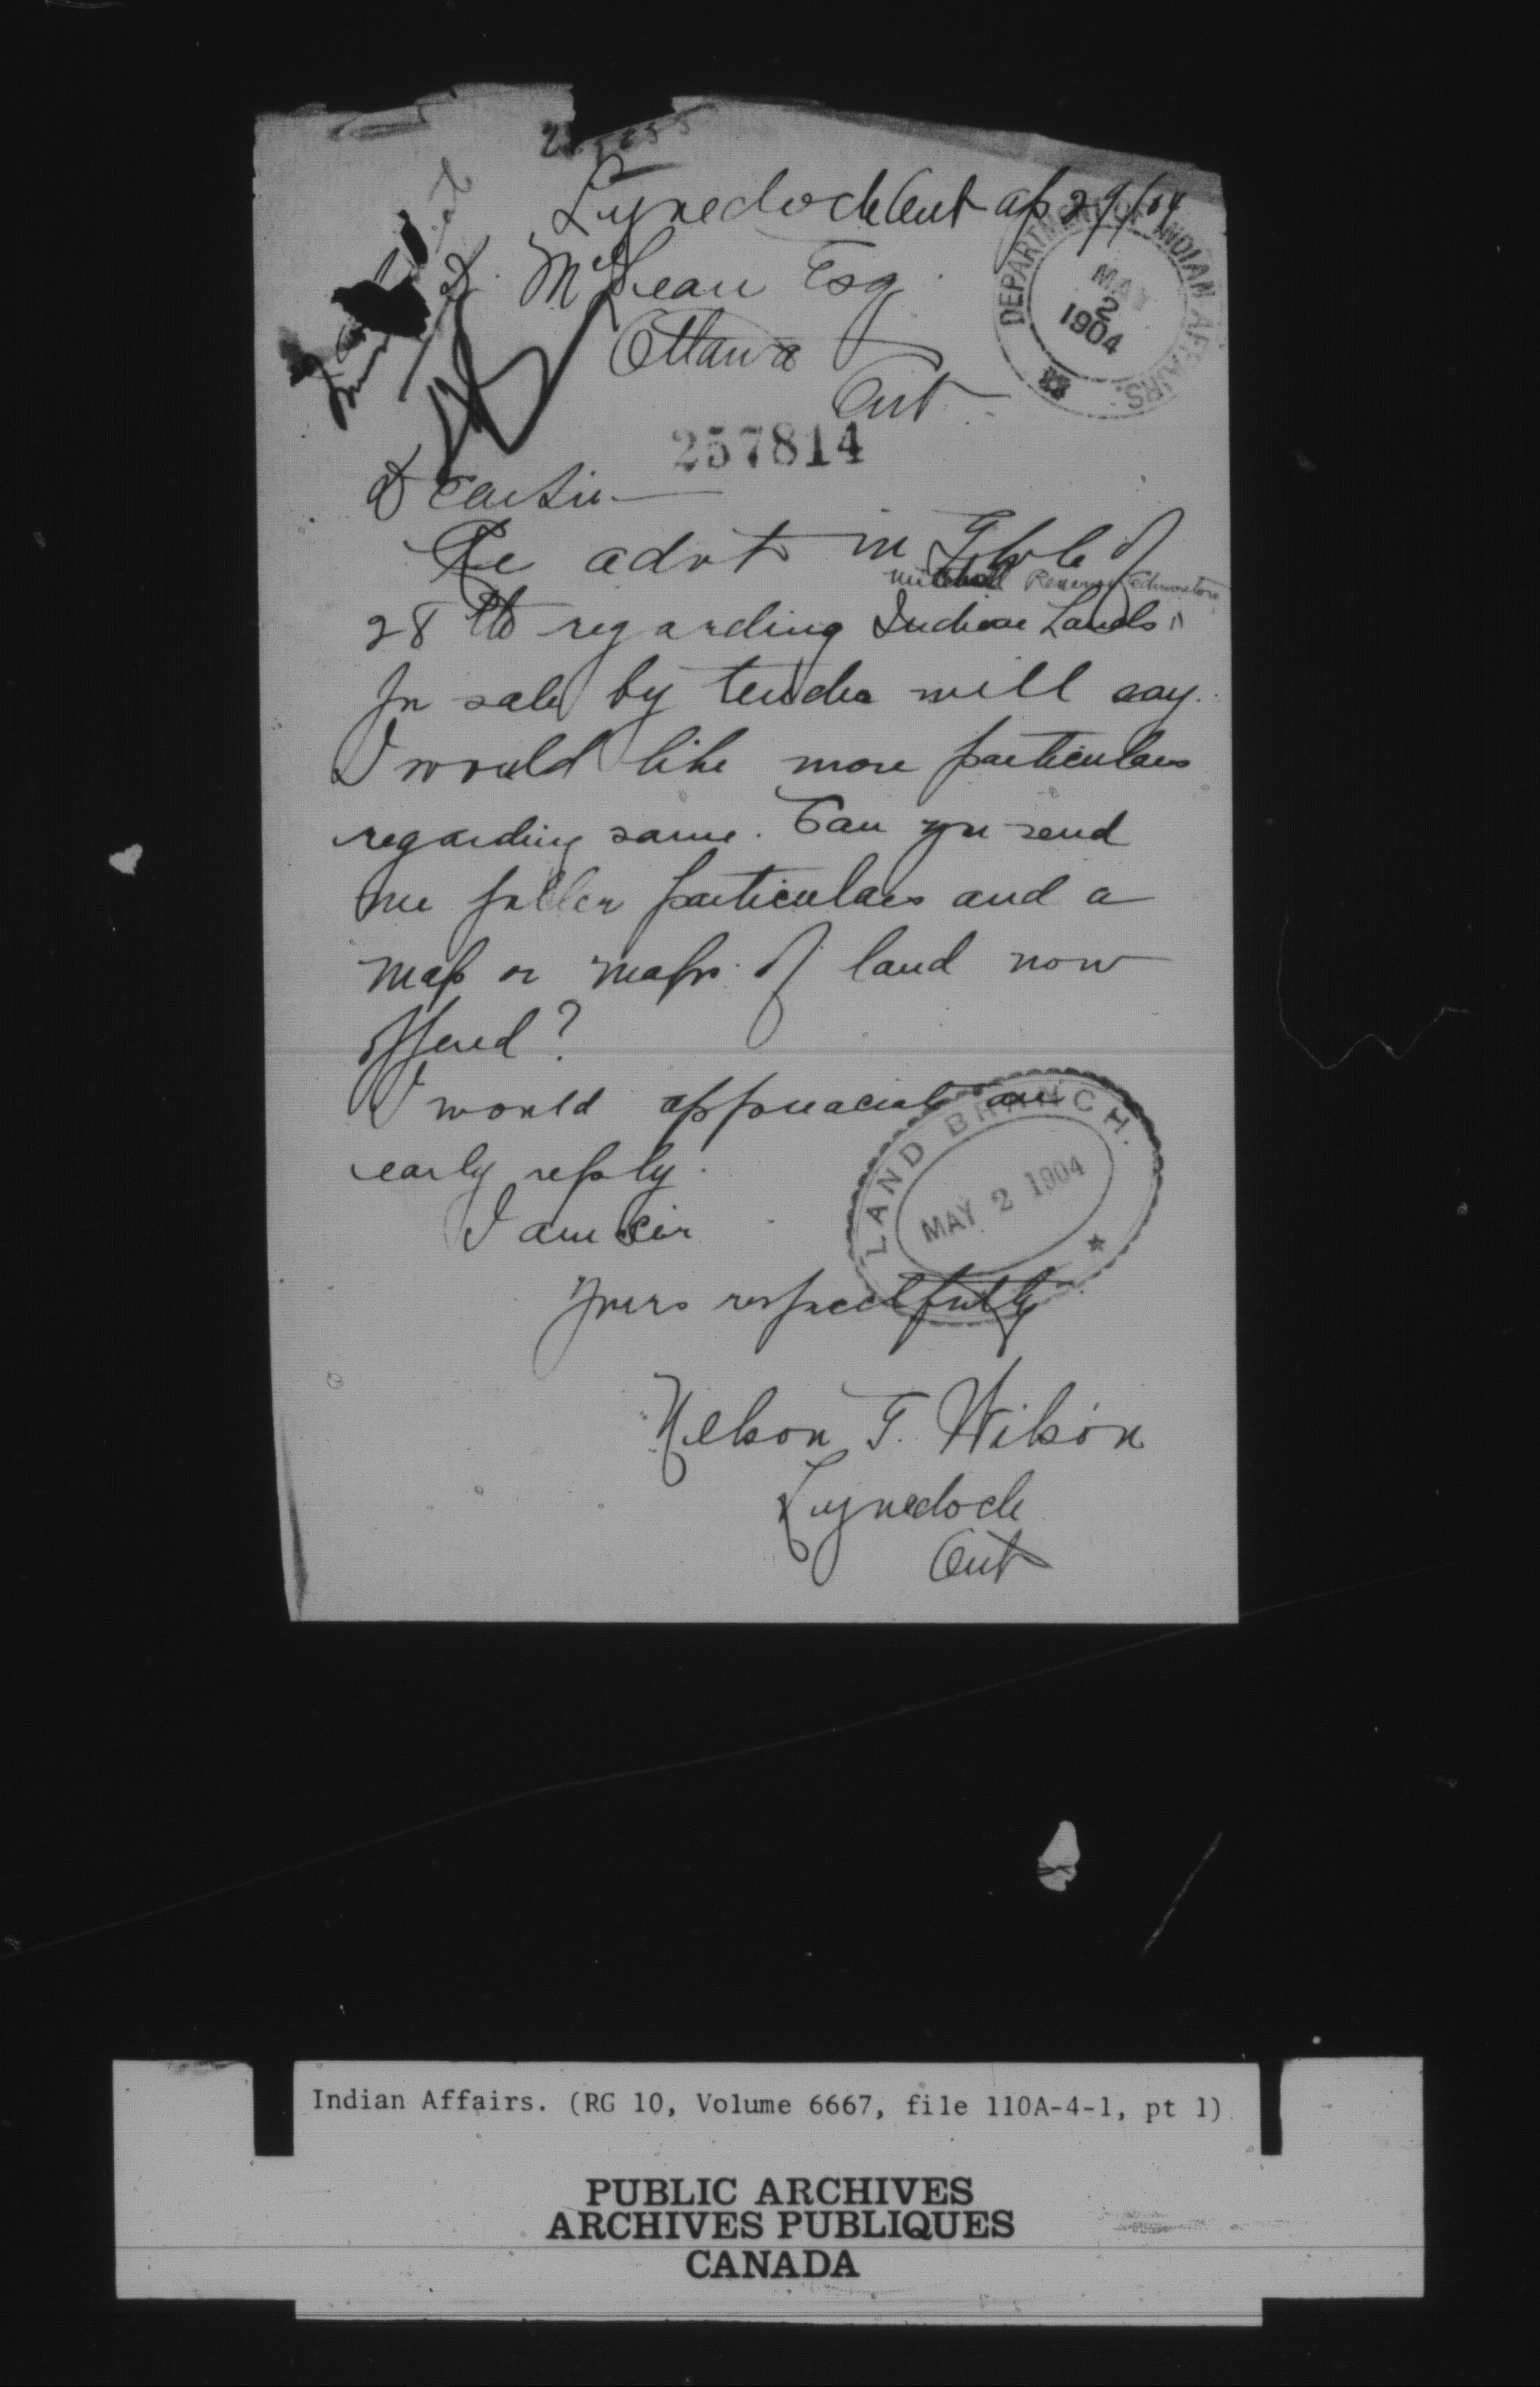 Lynedoch Ont ap 29/04
J. D. McLean Esq
Ottawa
Ont
DEPARTMENT OF INDIAN AFFAIRS.
MAY
2
1904
257814
Dear Sir
Re advt in Globe of
Reserve Edmonton
28th regarding Indian Lands
for sale by tender will say
I would like more particulars
regarding same. Can you send
me fuller particulars and a
map or maps of land now
offered?
I would appreaciate an
early reply.
I am sir
Yours respectfully
Nelson T. Wilson
Lynedoch
Ont
LAND BRANCH.
MAY 2 1904
Indian Affairs. (RG 10, Volume 6667, file 110A-4-1, pt 1)
PUBLIC ARCHIVES
ARCHIVES PUBLIQUES
CANADA